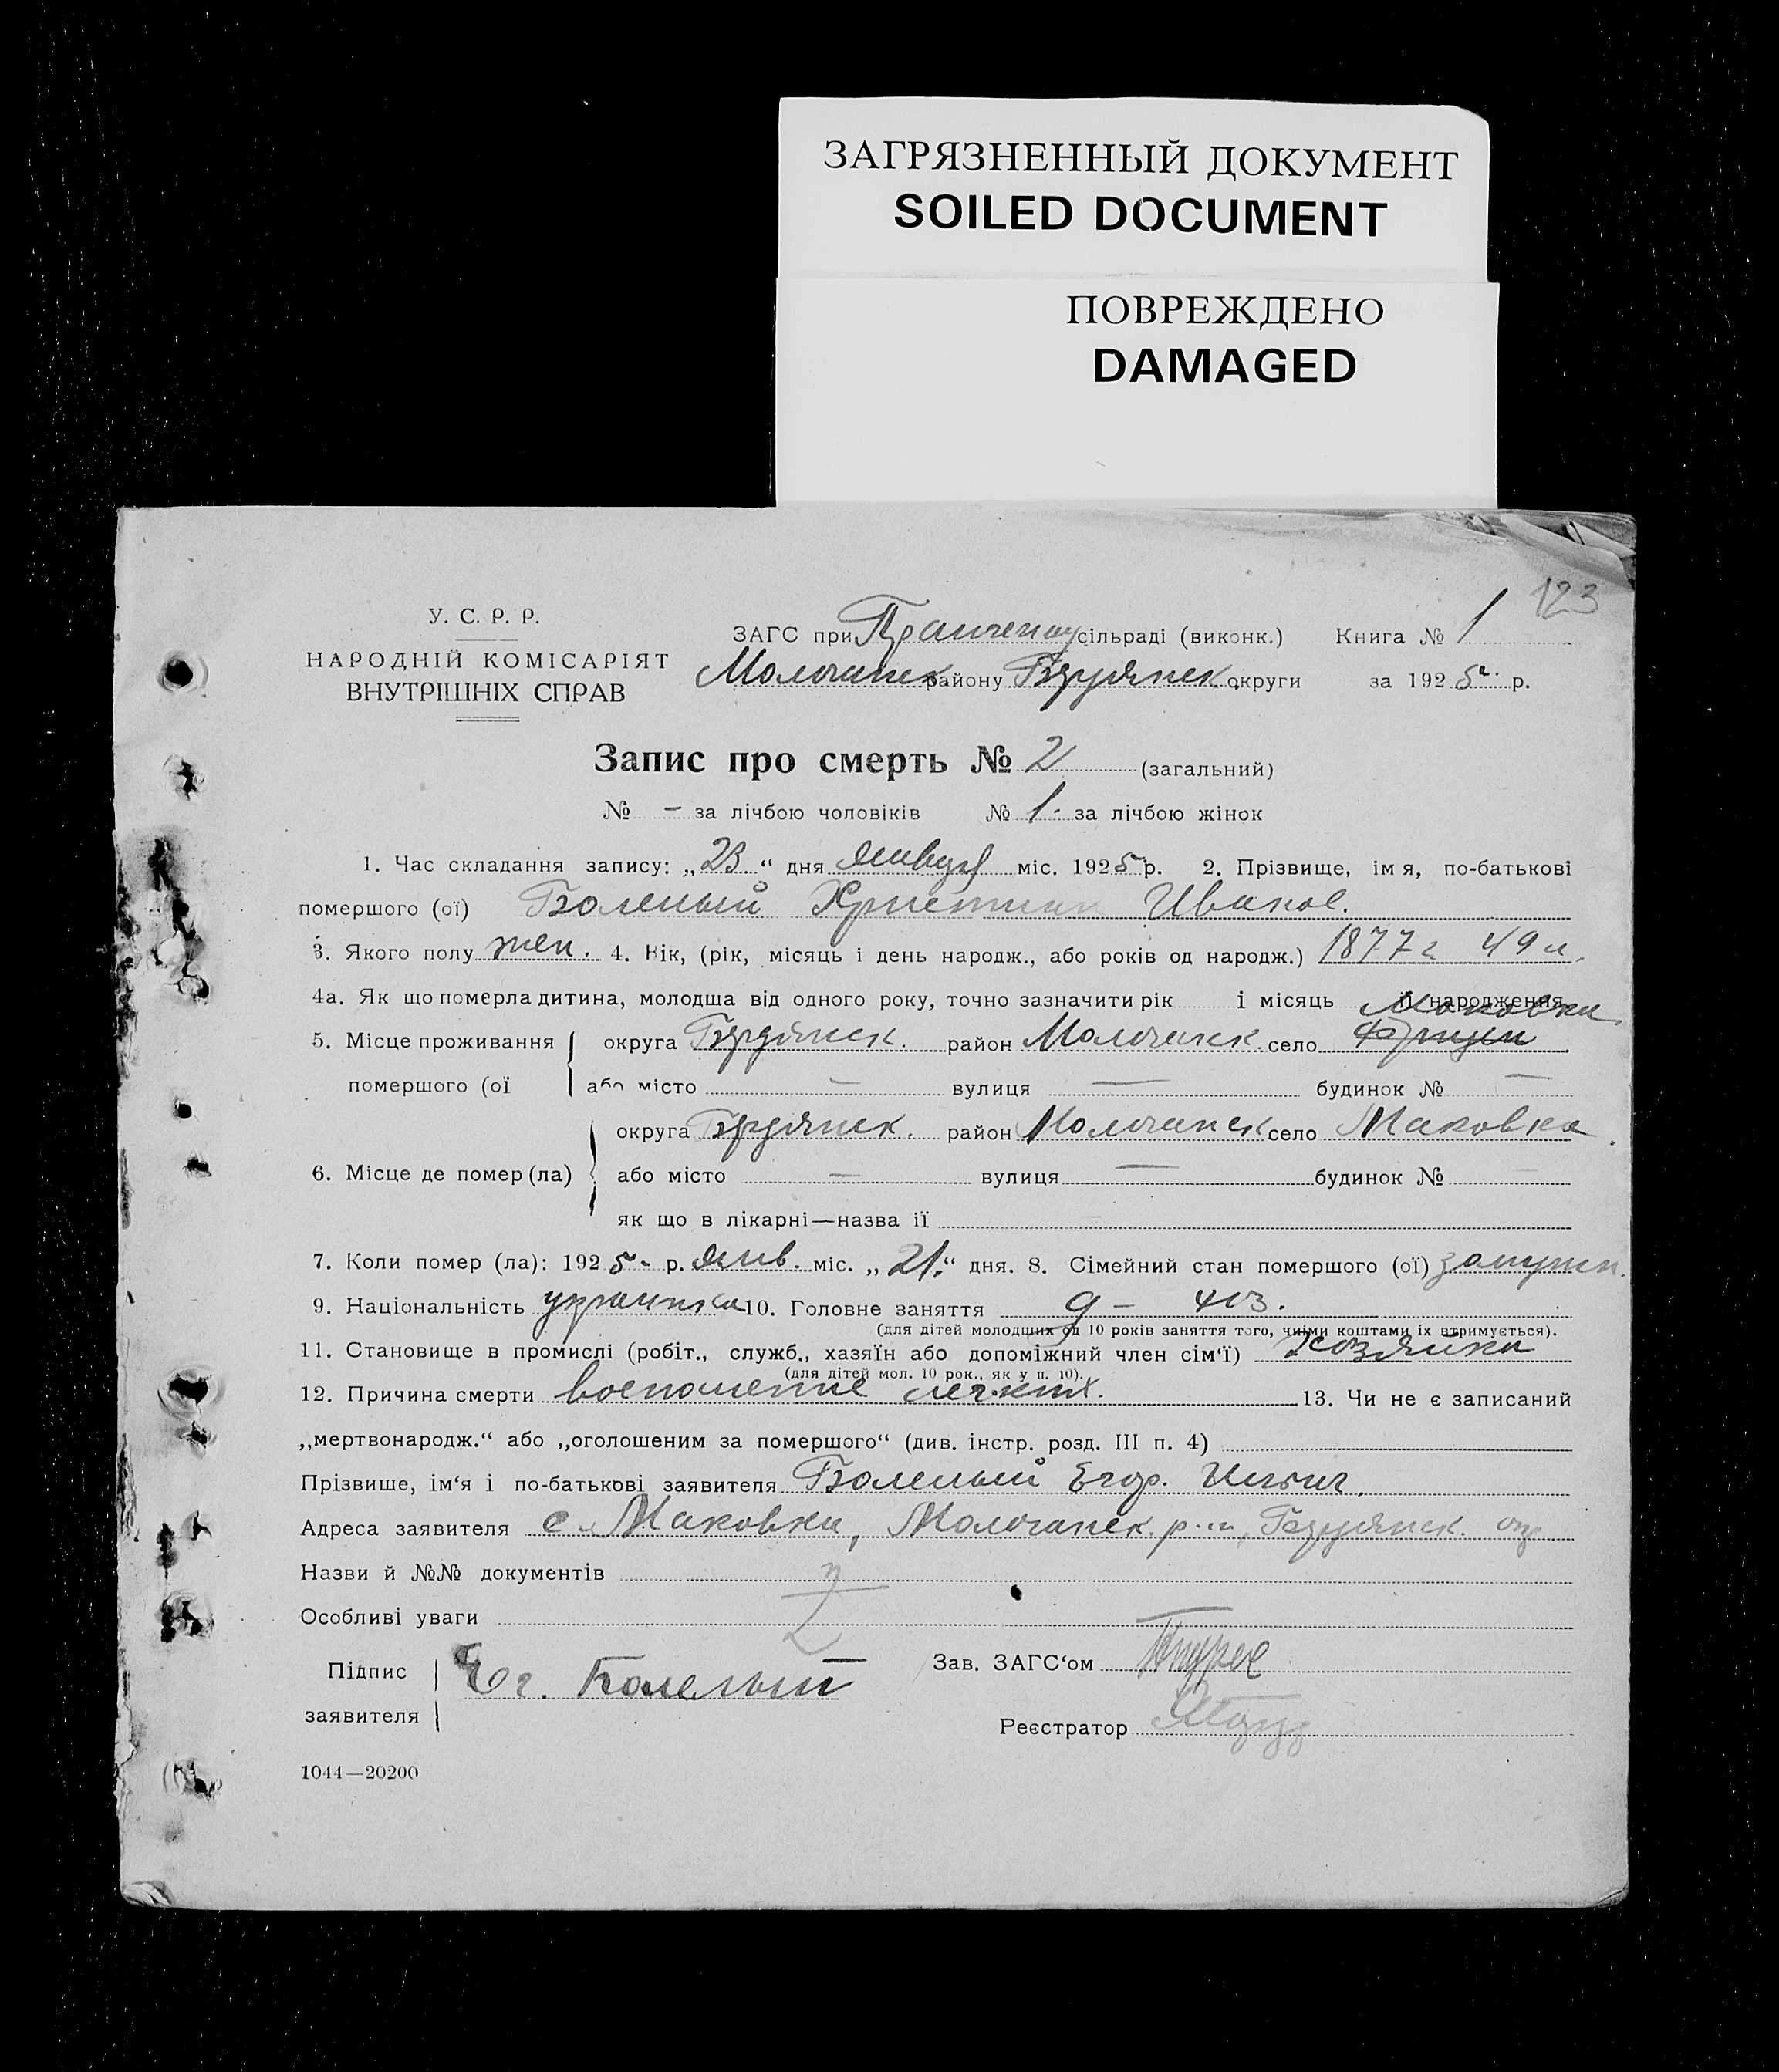 ЗАГРЯЗНЕННЫЙ ДОКУМЕНТ
SOILED DOCUMENT
ПОВРЕЖДЕНО
DAMAGED
123
У. С. Р. Р.
НАРОДНІЙ КОМІСАРІЯТ
ВНУТРІШНІХ СПРАВ
ЗАГС при сільраді (виконк.) Книга № 1
Молочанск району Бердянск. округи за 1925 р.
Запис про смерть № 2 (загальний)
№ – за лічбою чоловіків № 1. за лічбою жінок
1. Час складання запису: „23“ дня января міс. 1925 р. 2. Прізвище, імя, по-батькові
помершого (ої) Иванов.
3. Якого полу жен. 4. Вік, (рік, місяць і день народж., або років од народж.) 1877 г 49 л.
4а. Як що померла дитина, молодша від одного року, точно зазначити рік і місяць її народження
Маковка
5. Місце проживання округа Бердянск. район Молочанск. село
помершого (ої або місто — вулиця — будинок № —
округа Бердянск. район Молочанск село Маковка.
6. Місце де помер (ла) або місто — вулиця — будинок №
як що в лікарні—назва її
7. Коли помер (ла): 1925 р. янв. міс. „21.“ дня. 8. Сімейний стан помершого (ої) замужн.
9. Національність украинка 10. Головне заняття
(для дітей молодших од 10 років заняття того, чиїми коштами їх втримується).
11. Становище в промислі (робіт., служб., хазяїн або допоміжний член сім'ї) хозяйка
(для дітей мол. 10 рок., як у п. 10).
12. Причина смерти восполение легких. 13. Чи не є записаний
„мертвонародж.“ або „оголошеним за помершого“ (див. інстр. розд. III п. 4)
Прізвище, ім'я і по-батькові заявителя Егор.
Адреса заявителя с. Маковка, Молочанск. р-н, Бердянск. окр.
Назви й №№ документів
Особливі уваги
Підпис
заявителя
Ег.
Зав. ЗАГС'ом
Реєстратор
1044—20200